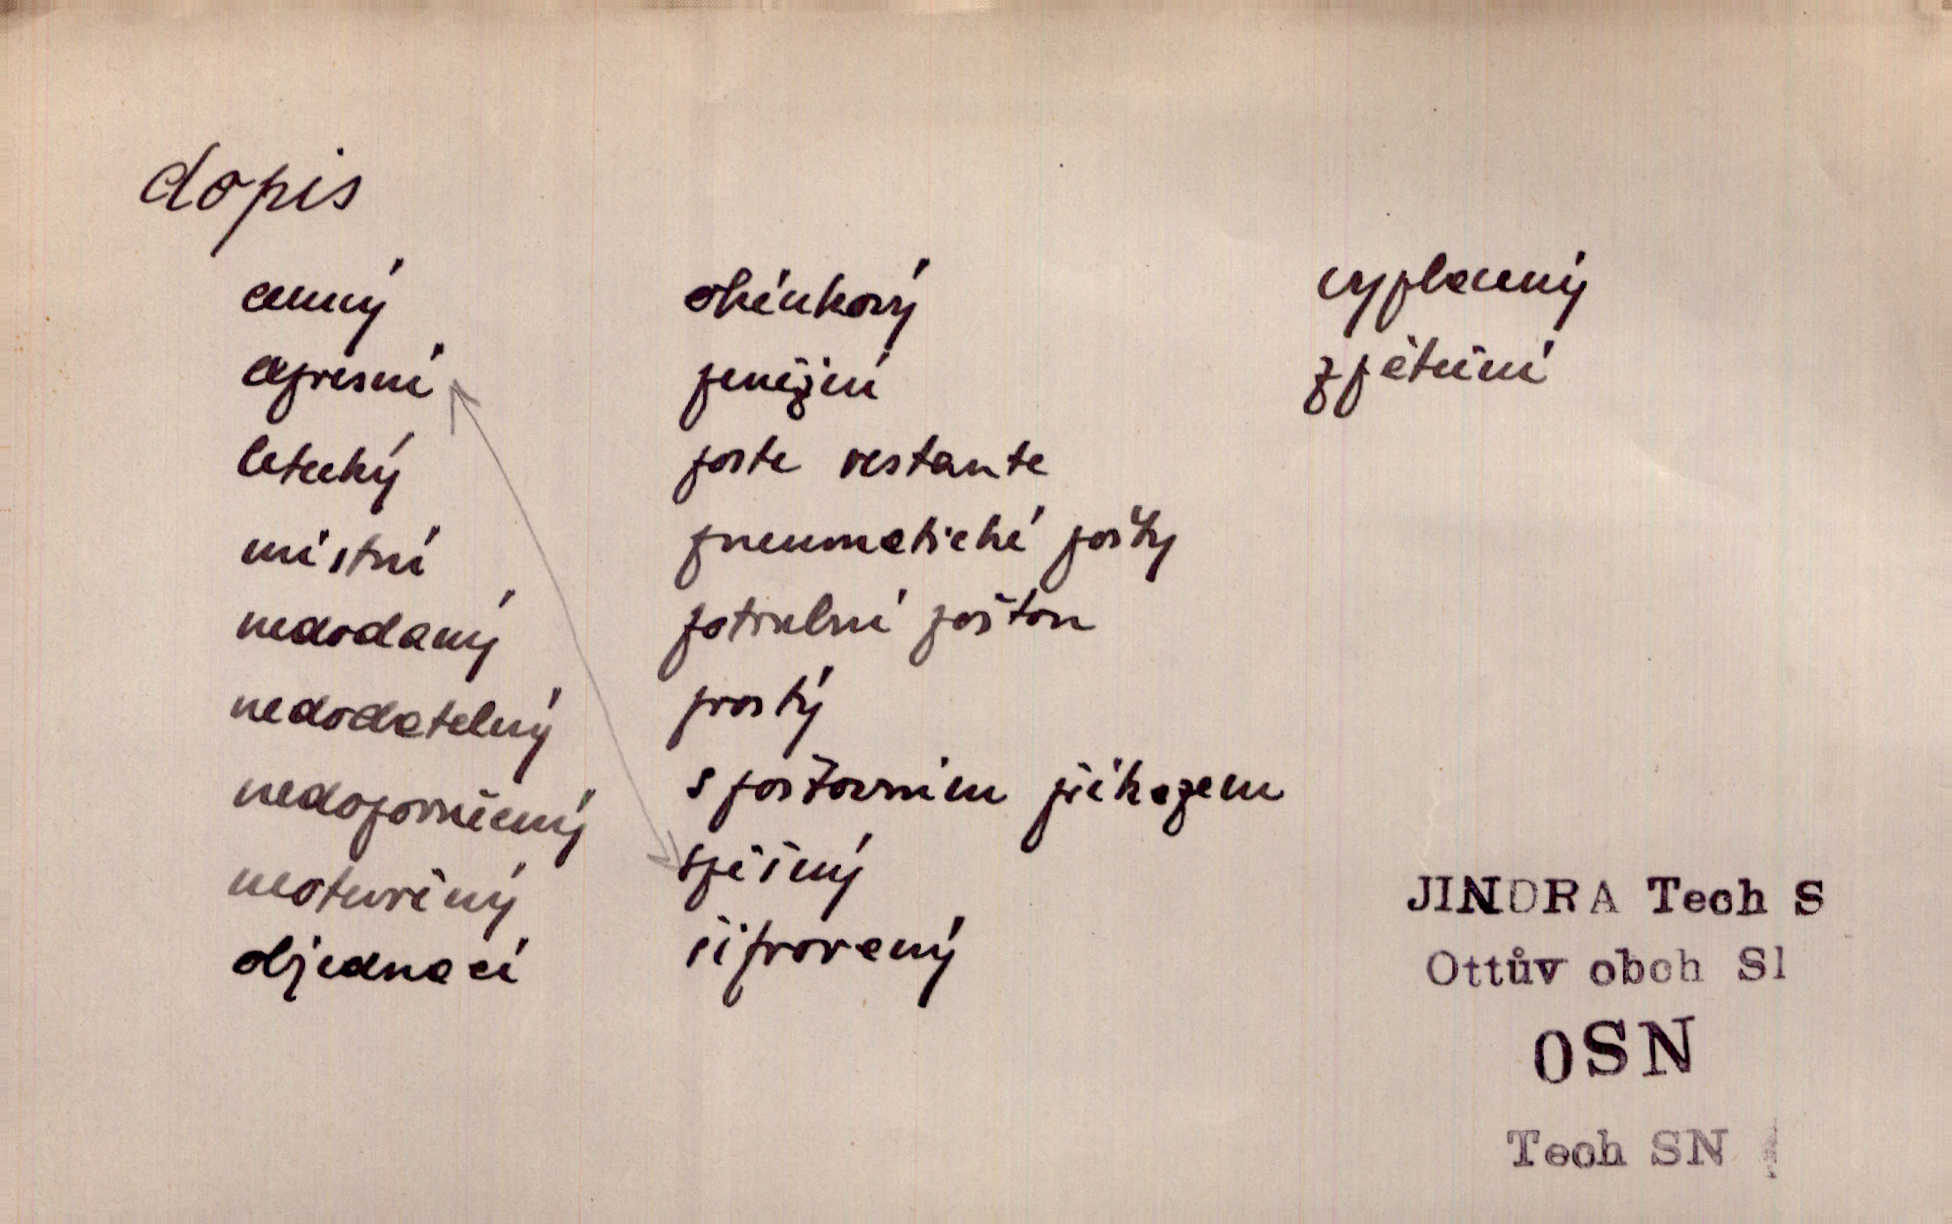 dopis
cenný
expresní
letecký
místní
nedodaný
nedodatelný
nedoporučený
neotevřený
objednací
okénkový
peněžní
poste restante
pneumatické pošty
potrubní poštou
prostý
s poštovním příkazem
spěšný
šifrovaný
vyplacený
zpáteční
JINDRA Tech S
Ottův obch Sl
OSN
Tech SN